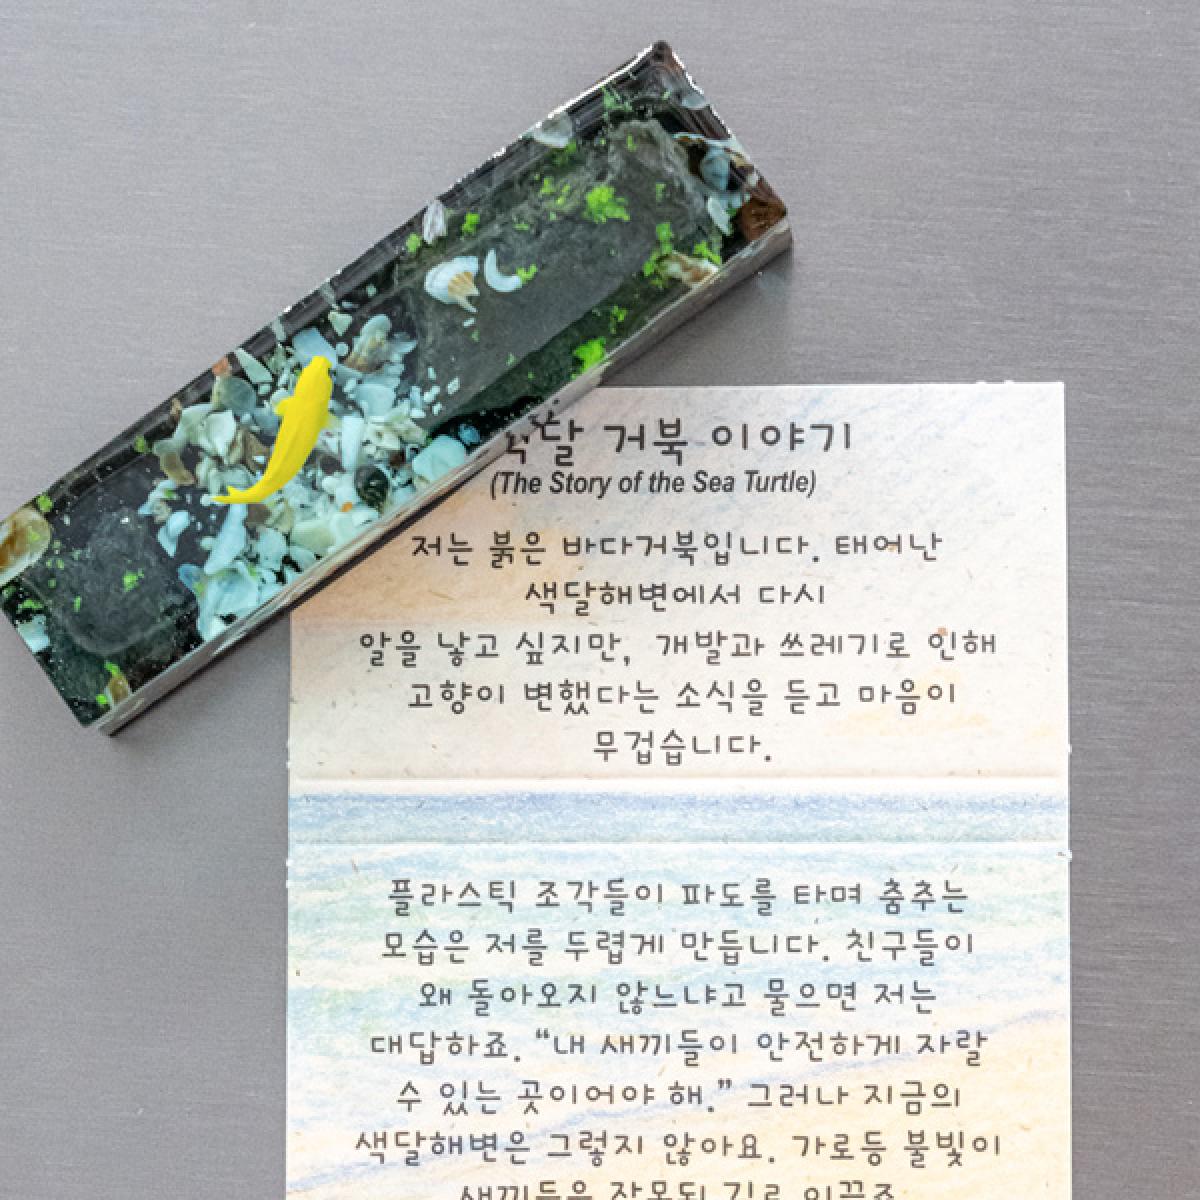 색달 거북 이야기
(The Story of the Sea Turtle)
저는 붉은 바다거북입니다. 태어난
색달해변에서 다시
알을 낳고 싶지만, 개발과 쓰레기로 인해
고향이 변했다는 소식을 듣고 마음이
무겁습니다.
플라스틱 조각들이 파도를 타며 춤추는
모습은 저를 두렵게 만듭니다. 친구들이
왜 돌아오지 않느냐고 물으면 저는
대답하죠. “내 새끼들이 안전하게 자랄
수 있는 곳이어야 해.” 그러나 지금의
색달해변은 그렇지 않아요. 가로등 불빛이
새끼들을 잘못된 길로 이끌죠